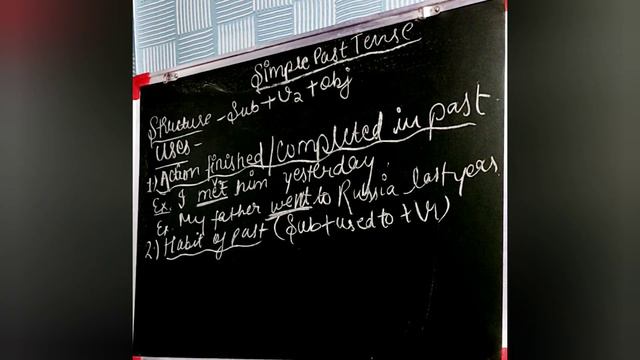 Simple Past Tense
Structure - Sub + V2 + Obj
Uses -
1) Action finished/completed in past
Ex. I met him yesterday.
Ex. My father went to Russia last year.
2) Habit of past (Sub + used to + V1)